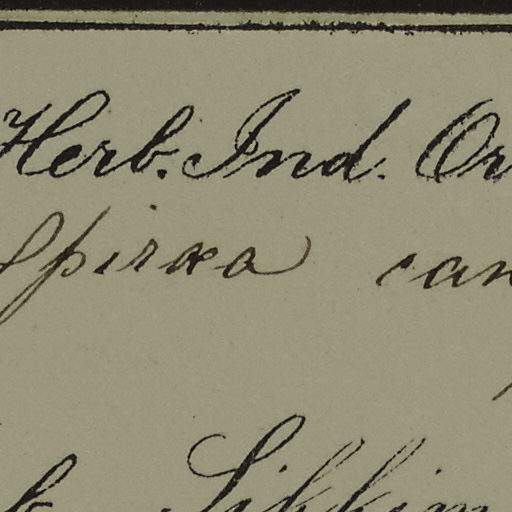 Herb. Ind. Or
Spiraea can
Sikkim